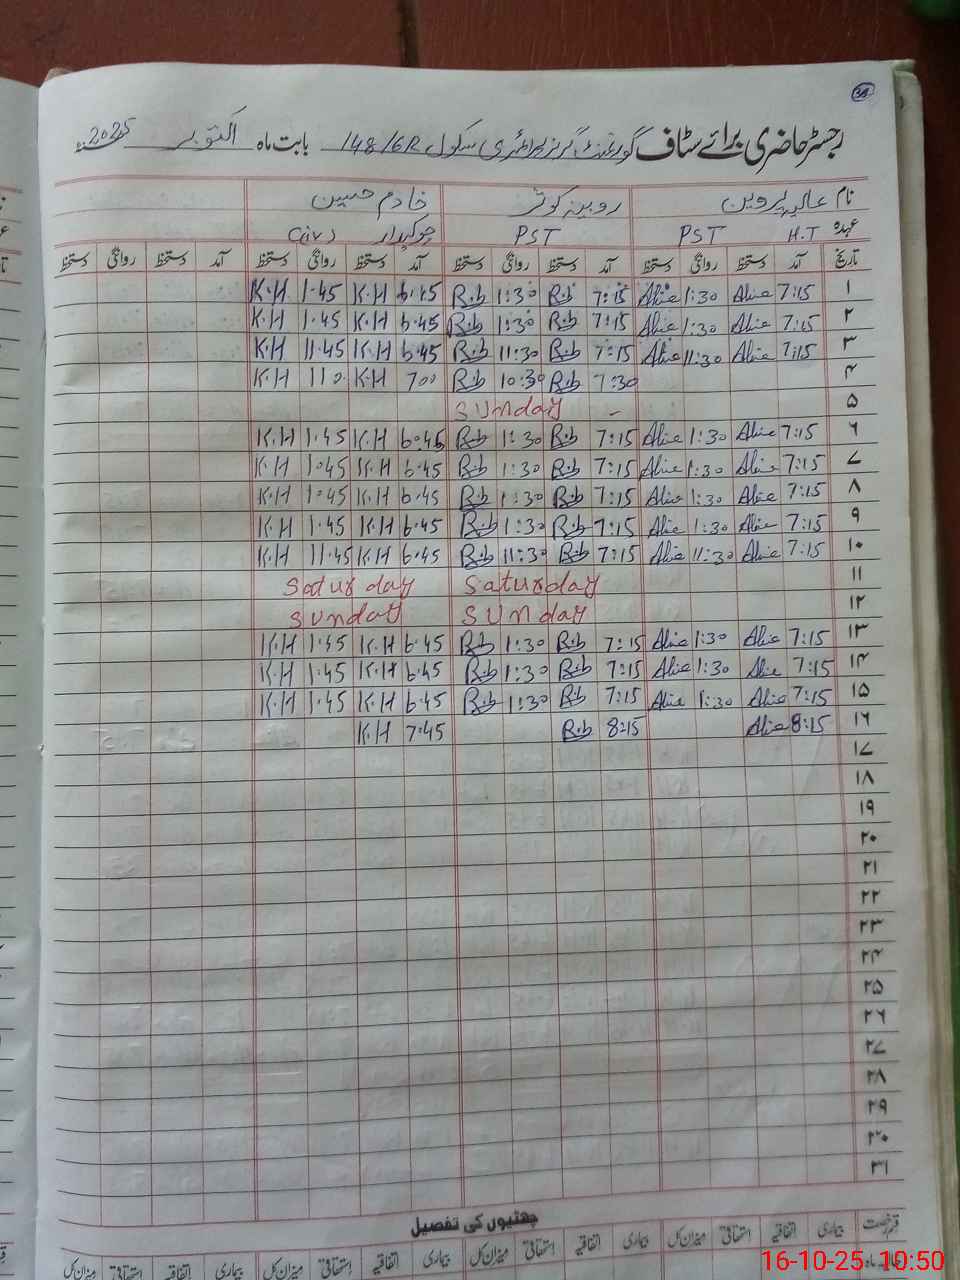 34
رجسٹر حاضری برائے سٹاف گورنمنٹ گرلز پرائمری سکول 148/6R بابت ماہ اکتوبر 2025
نام عالیہ پروین روبینہ کوثر خادم حسین
عہدہ H.T PST PST چوکیدار (iv)
تاریخ آمد دستخط روانگی دستخط آمد دستخط روانگی دستخط آمد دستخط روانگی دستخط آمد دستخط روانگی دستخط
۱ 7:15 Alia 1:30 Alia 7:15 Rib 1:30 Rib 6.45 K.H 1.45 K.H
۲ 7:15 Alia 1:30 Alia 7:15 Rib 1:30 Rib 6.45 K.H 1.45 K.H
۳ 7:15 Alia 11:30 Alia 7:15 Rib 11:30 Rib 6.45 K.H 11.45 K.H
۴ 7:30 Rib 10:30 Rib 700 K.H 110 K.H
۵ Sunday
۶ 7:15 Alia 1:30 Alia 7:15 Rib 1:30 Rib 6.45 K.H 1.45 K.H
۷ 7:15 Alia 1:30 Alia 7:15 Rib 1:30 Rib 6.45 K.H 1.45 K.H
۸ 7:15 Alia 1:30 Alia 7:15 Rib 1:30 Rib 6.45 K.H 1.45 K.H
۹ 7:15 Alia 1:30 Alia 7:15 Rib 1:30 Rib 6.45 K.H 1.45 K.H
۱۰ 7:15 Alia 11:30 Alia 7:15 Rib 11:30 Rib 6.45 K.H 11.45 K.H
۱۱ Saturday Saturday
۱۲ Sunday Sunday
۱۳ 7:15 Alia 1:30 Alia 7:15 Rib 1:30 Rib 6.45 K.H 1.45 K.H
۱۴ 7:15 Alia 1:30 Alia 7:15 Rib 1:30 Rib 6.45 K.H 1.45 K.H
۱۵ 7:15 Alia 1:30 Alia 7:15 Rib 1:30 Rib 6.45 K.H 1.45 K.H
۱۶ 8:15 Alia 8:15 Rib 7.45 K.H
۱۷
۱۸
۱۹
۲۰
۲۱
۲۲
۲۳
۲۴
۲۵
۲۶
۲۷
۲۸
۲۹
۳۰
۳۱
چھٹیوں کی تفصیل
قسم رخصت بیماری اتفاقیہ استحقاقی میزان کل بیماری اتفاقیہ استحقاقی میزان کل بیماری اتفاقیہ استحقاقی میزان کل بیماری اتفاقیہ استحقاقی میزان کل
16-10-25 10:50